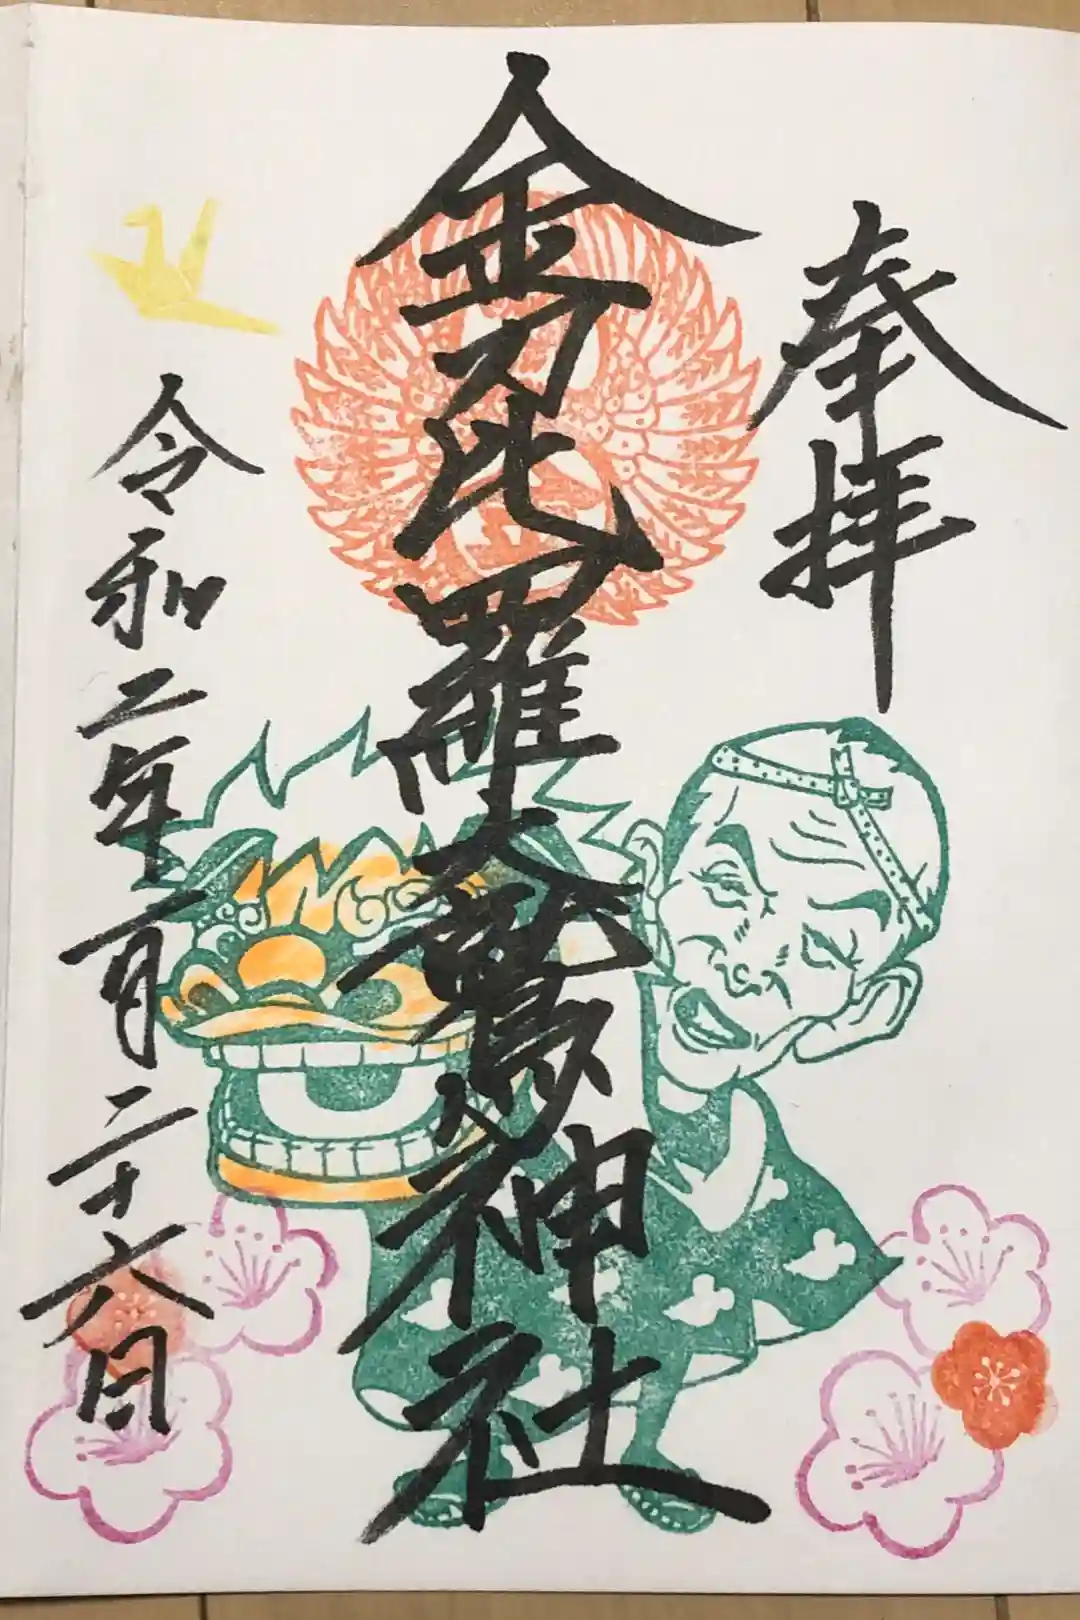 奉拝
金刀比羅大鷲神社
令和二年二月二十六日